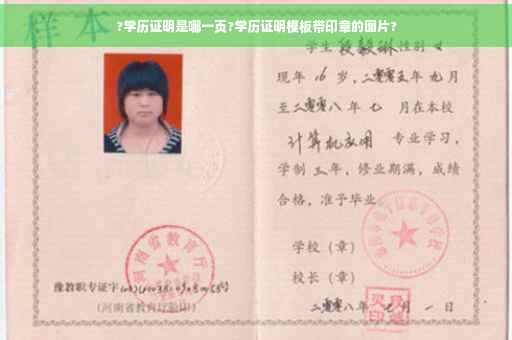 ?学历证明是哪一页?学历证明模板带印章的图片?
样本
学生 段毅琳 性别 女
现年 16 岁,二零零五年九月
至二零零八年七 月在本校
计算机应用 专业学习,
学制 三年,修业期满,成绩
合格,准予毕业
学校(章)
校长(章)
二零零八年 月 一 日
河南省教育厅
豫教职专证字
(河南省教育厅验印)